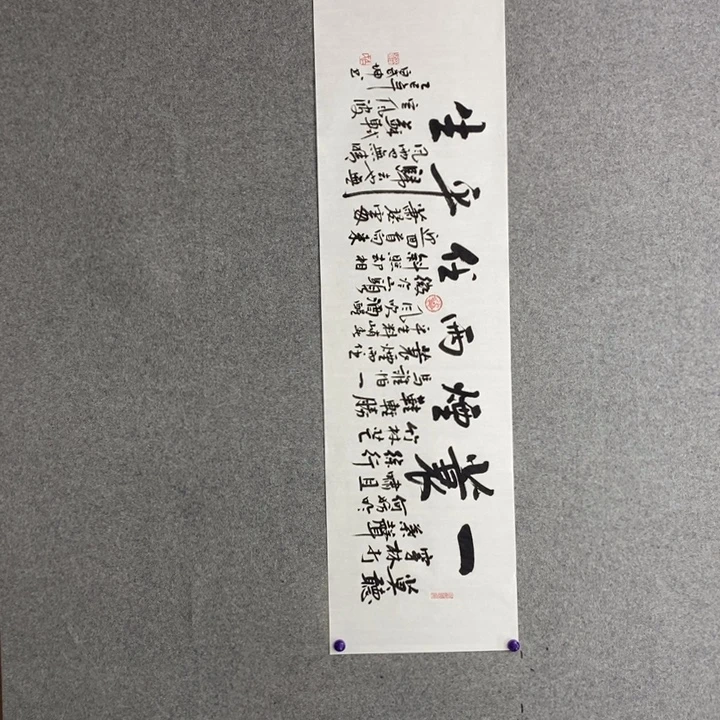 一蓑煙雨任平生
莫聽
穿林打
葉聲
何妨吟
嘯且
徐行
竹杖芒
鞋輕勝
馬誰怕一
蓑煙雨任
平生料峭春
風吹酒醒
微冷山頭
斜照却相
迎回首向來
蕭瑟處
歸去也無
風雨也無晴
蘇軾定風波
乙巳年
坤书